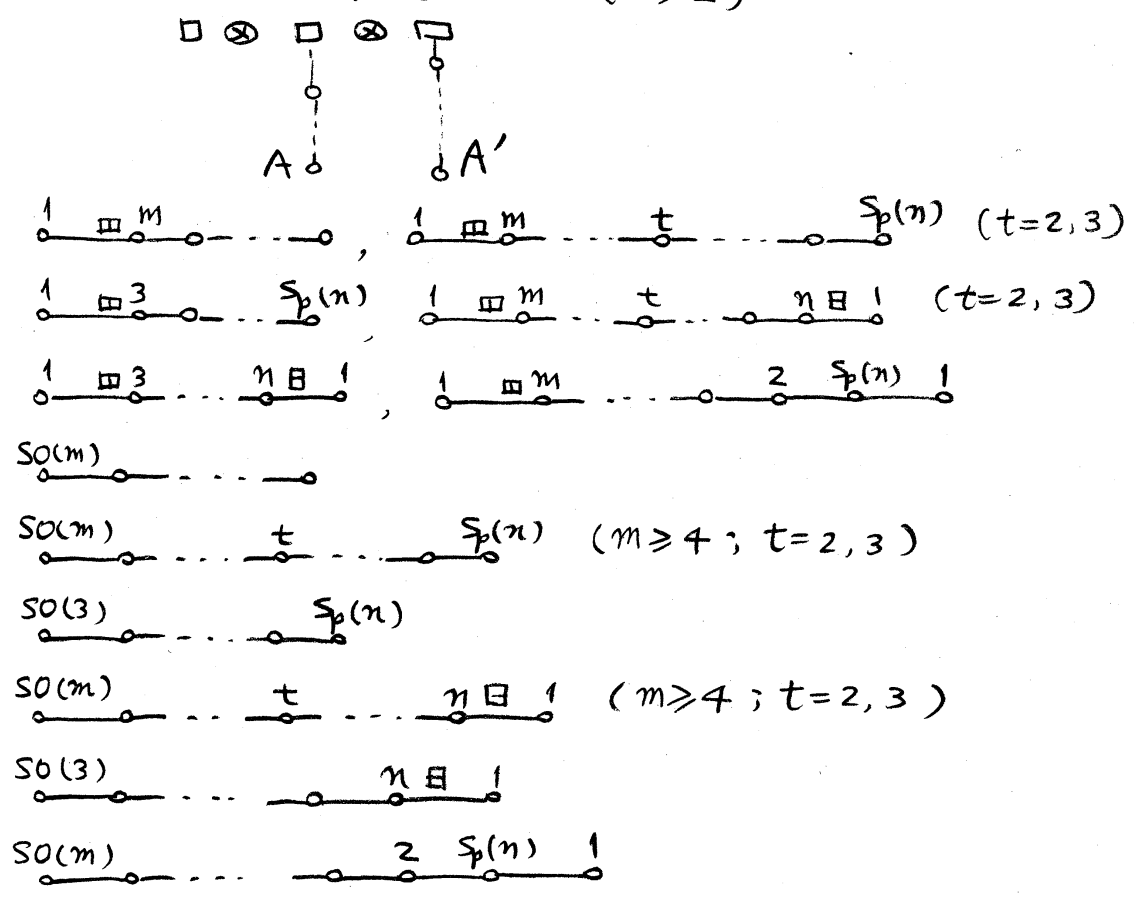 □ ⊗ □ ⊗ □
A A'
1 m , 1 m t Sp(n) (t=2,3)
1 3 Sp(n) , 1 m t n 1 (t=2,3)
1 3 n 1 , 1 m 2 Sp(n) 1
SO(m)
SO(m) t Sp(n) (m⩾4; t=2,3)
SO(3) Sp(n)
SO(m) t n 1 (m⩾4; t=2,3)
SO(3) n 1
SO(m) 2 Sp(n) 1